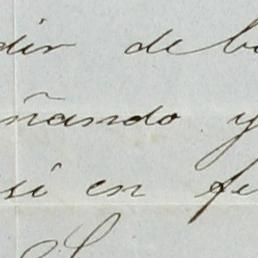 dir de b
ñando y
si en fe